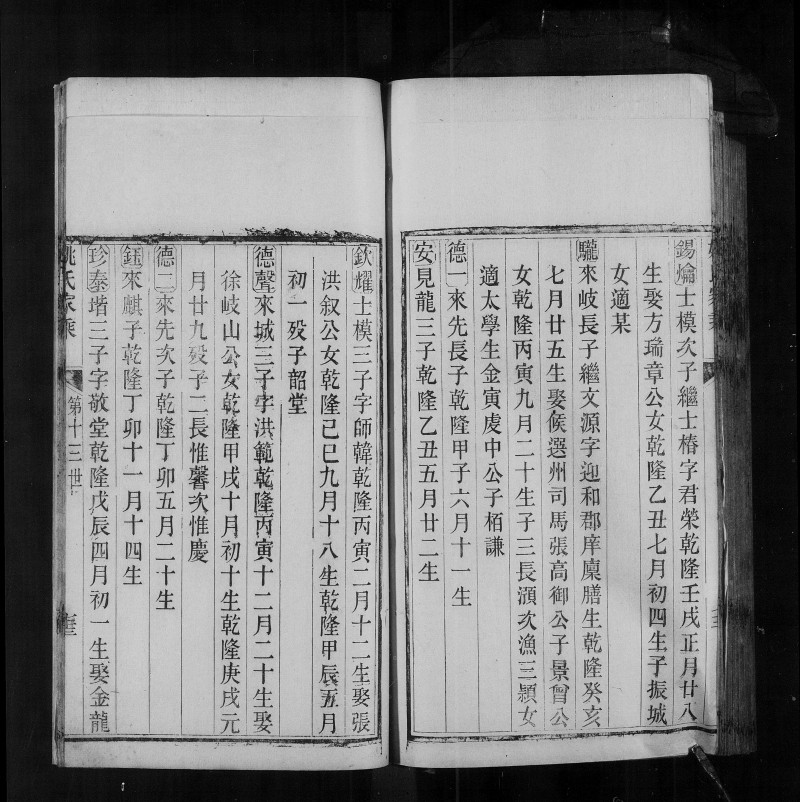 錫爚士模次子繼士椿字君榮乾隆壬戌正月廿八
生娶方瑞章公女乾隆乙丑七月初四生子振城
女適某
驪來岐長子繼文源字迎和郡庠廩膳生乾隆癸亥
七月廿五生娶候選州司馬張高御公子景曾公
女乾隆丙寅九月二十生子三長澒次漁三穎女
適太學生金寅虔中公子栢謙
德一來先長子乾隆甲子六月十一生
安見龍三子乾隆乙丑五月廿二生
欽耀士模三子字師韓乾隆丙寅二月十二生娶張
洪叙公女乾隆己巳九月十八生乾隆甲辰五月
初一歿子韶堂
德聲來城三子字洪範乾隆丙寅十二月二十生娶
徐岐山公女乾隆甲戌十月初十生乾隆庚戌元
月廿九歿子二長惟馨次惟慶
德二來先次子乾隆丁卯五月二十生
鈺來麒子乾隆丁卯十一月十四生
珍泰堦三子字敬堂乾隆戊辰四月初一生娶金龍
姚氏家乘
第十三世